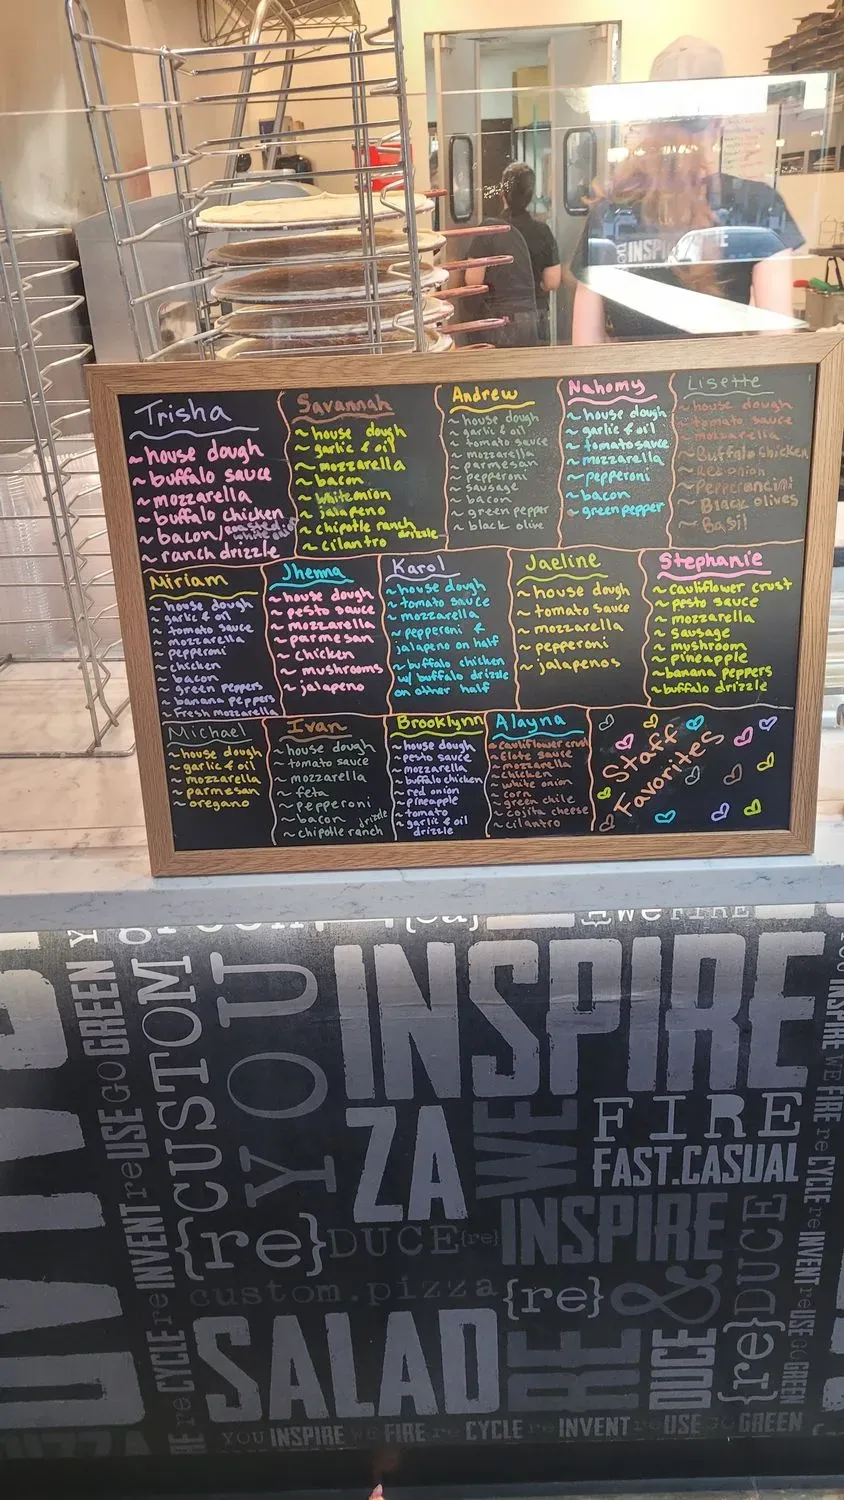 INSPIRE
Trisha
~ house dough
~ buffalo sauce
~ mozzarella
~ buffalo chicken
~ bacon/roasted white onion
~ ranch drizzle
Savannah
~ house dough
~ garlic & oil
~ mozzarella
~ bacon
~ white onion
~ jalapeno
~ chipotle ranch drizzle
~ cilantro
Andrew
~ house dough
~ garlic & oil
~ tomato sauce
~ mozzarella
~ parmesan
~ pepperoni
~ sausage
~ bacon
~ green pepper
~ black olive
Nahomy
~ house dough
~ garlic & oil
~ tomato sauce
~ mozzarella
~ pepperoni
~ bacon
~ green pepper
Lisette
~ house dough
~ tomato sauce
~ mozzarella
~ Buffalo chicken
~ Red onion
~ Pepperoncini
~ Black olives
~ Basil
Miriam
~ house dough
~ garlic & oil
~ tomato sauce
~ mozzarella
~ pepperoni
~ chicken
~ bacon
~ green peppers
~ banana peppers
~ Fresh mozzarella
Jhenna
~ house dough
~ pesto sauce
~ mozzarella
~ parmesan
~ chicken
~ mushrooms
~ jalapeno
Karol
~ house dough
~ tomato sauce
~ mozzarella
~ pepperoni &
jalapeno on half
~ buffalo chicken
w/ buffalo drizzle
on other half
Jaeline
~ house dough
~ tomato sauce
~ mozzarella
~ pepperoni
~ jalapenos
Stephanie
~ cauliflower crust
~ pesto sauce
~ mozzarella
~ sausage
~ mushroom
~ pineapple
~ banana peppers
~ buffalo drizzle
Michael
~ house dough
~ garlic & oil
~ mozzarella
~ parmesan
~ oregano
Ivan
~ house dough
~ tomato sauce
~ mozzarella
~ feta
~ pepperoni
~ bacon
~ chipotle ranch drizzle
Brooklynn
~ house dough
~ pesto sauce
~ mozzarella
~ buffalo chicken
~ red onion
~ pineapple
~ tomato
~ garlic & oil
drizzle
Alayna
~ cauliflower crust
~ elote sauce
~ mozzarella
~ chicken
~ white onion
~ corn
~ green chile
~ cojita cheese
~ cilantro
Staff
Favorites
we FIRE
YOU
INSPIRE
ZA
WE
FIRE
FAST.CASUAL
{re}DUCE{re}
INSPIRE
custom.pizza
{re}
&
SALAD
RE
DUCE
{re}DUCE
CUSTOM
re CYCLE re INVENT reUSE GO GREEN
YOU INSPIRE WE FIRE re CYCLE re INVENT reUSE GO GREEN
YOU INSPIRE WE FIRE re CYCLE re INVENT reUSE GO GREEN